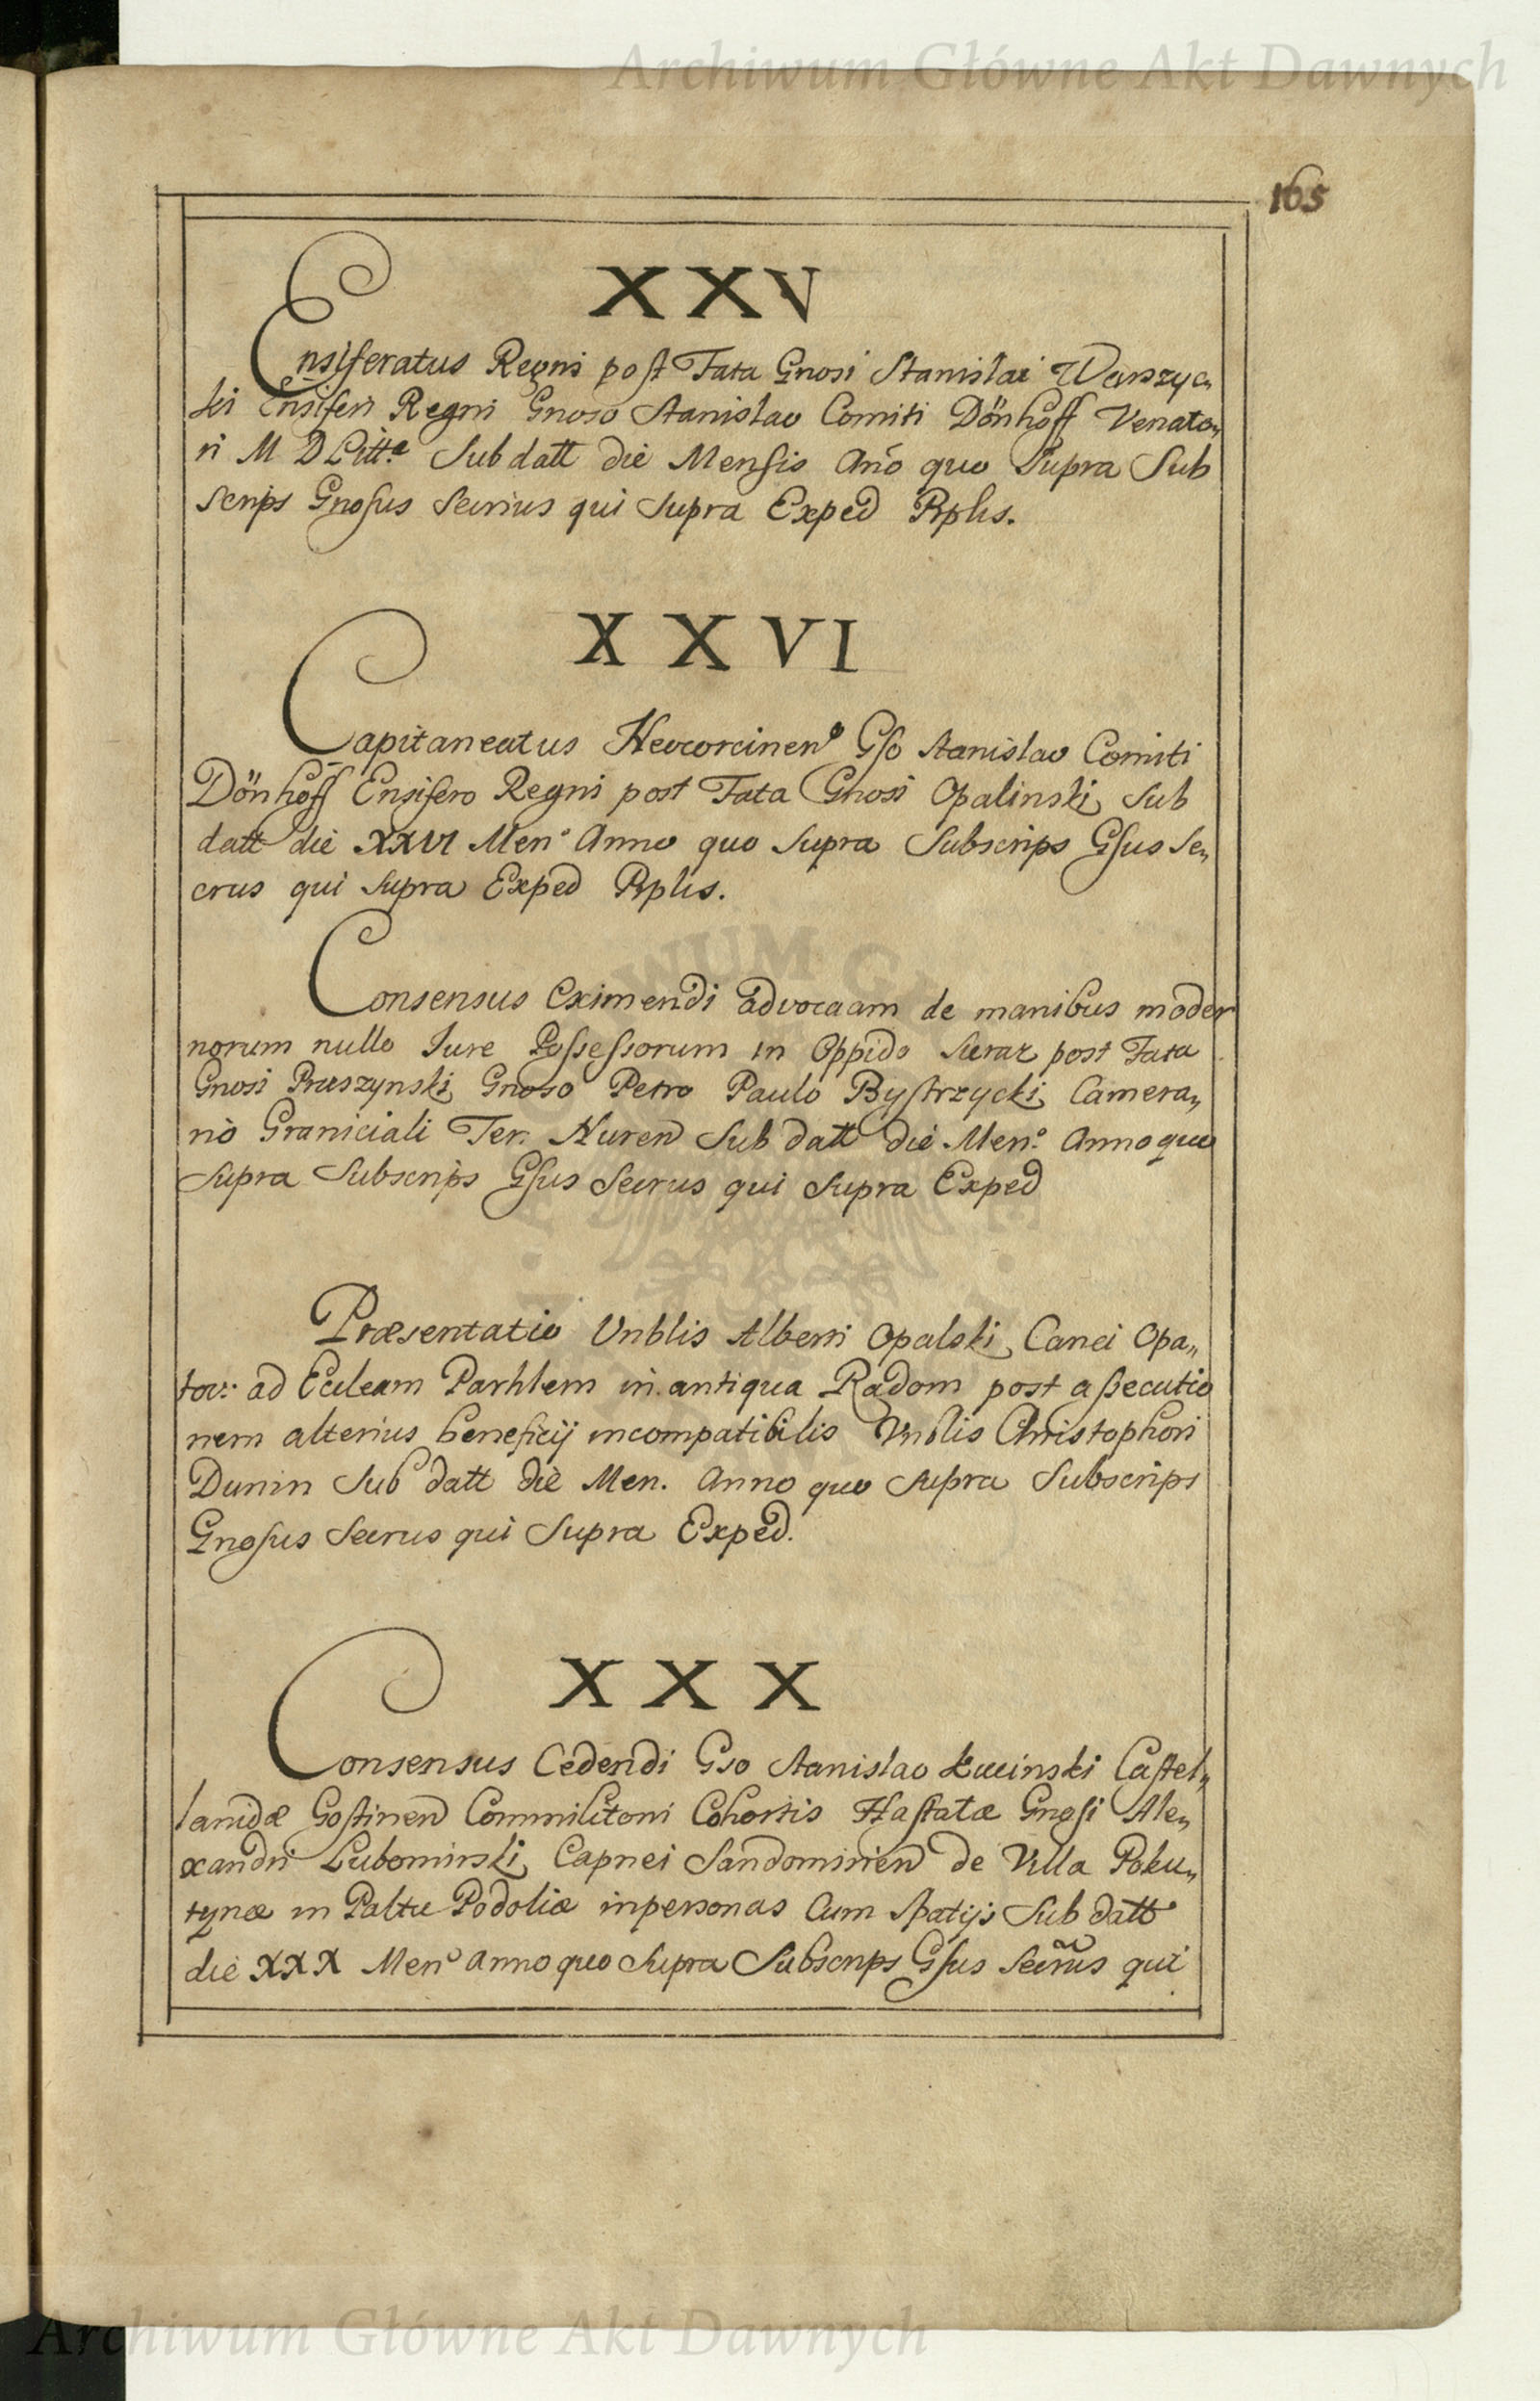 Archiwum Główne Akt Dawnych
165
XXV
Ensiferatus Regni post Fata Gnosi Stanislai Warszyc„
ki Ensiferi Regni Gnoso Stanislao Comiti Dönhoff Venato„
ri M D Litt.ae Sub datt die Mensis Año quo Supra Sub
scrips Gnosus Secrius qui Supra Exped Rplis.
XXVI
Capitaneatus Neocorcinen Gso Stanislao Comiti
Dönhoff Ensifero Regni post Fata Gnosi Opalinski Sub
datt die XXVI Men Anno quo Supra Subscrips Gsus Se„
crus qui Supra Exped Rplis.
Consensus Eximendi advocaam de manibus moder
norum nullo Iure Possessorum in Oppido Sieraz post Fata
Gnosi Pruszynski Gnoso Petro Paulo Bystrzycki Camera„
rio Graniciali Ter. Nuren Sub datt die Men: Anno quo
Supra Subscrips Gsus Secrus qui Supra Exped
Præsentatio Vnblis Alberti Opalski Canci Opa„
tov: ad Eccleam Parhlem in antiqua Radom post assecutio
nem alterius beneficij incompatibilis Vnblis Christophori
Dunin Sub datt die Men. Anno quo Supra Subscrips
Gnosus Secrus qui Supra Exped.
XXX
Consensus Cedendi Gso Stanislao Łucinski Castel„
lanidæ Gostinen Commilitoni Cohortis Hastatæ Gnosi Ale„
xandri Lubomirski Capnei Sandomirien de Villa Poku„
tynæ in Paltu Podoliæ inpersonas Cum Spatijs Sub datt
die XXX Men Anno quo Supra Subscrips Gsus Secrius qui
Archiwum Główne Akt Dawnych